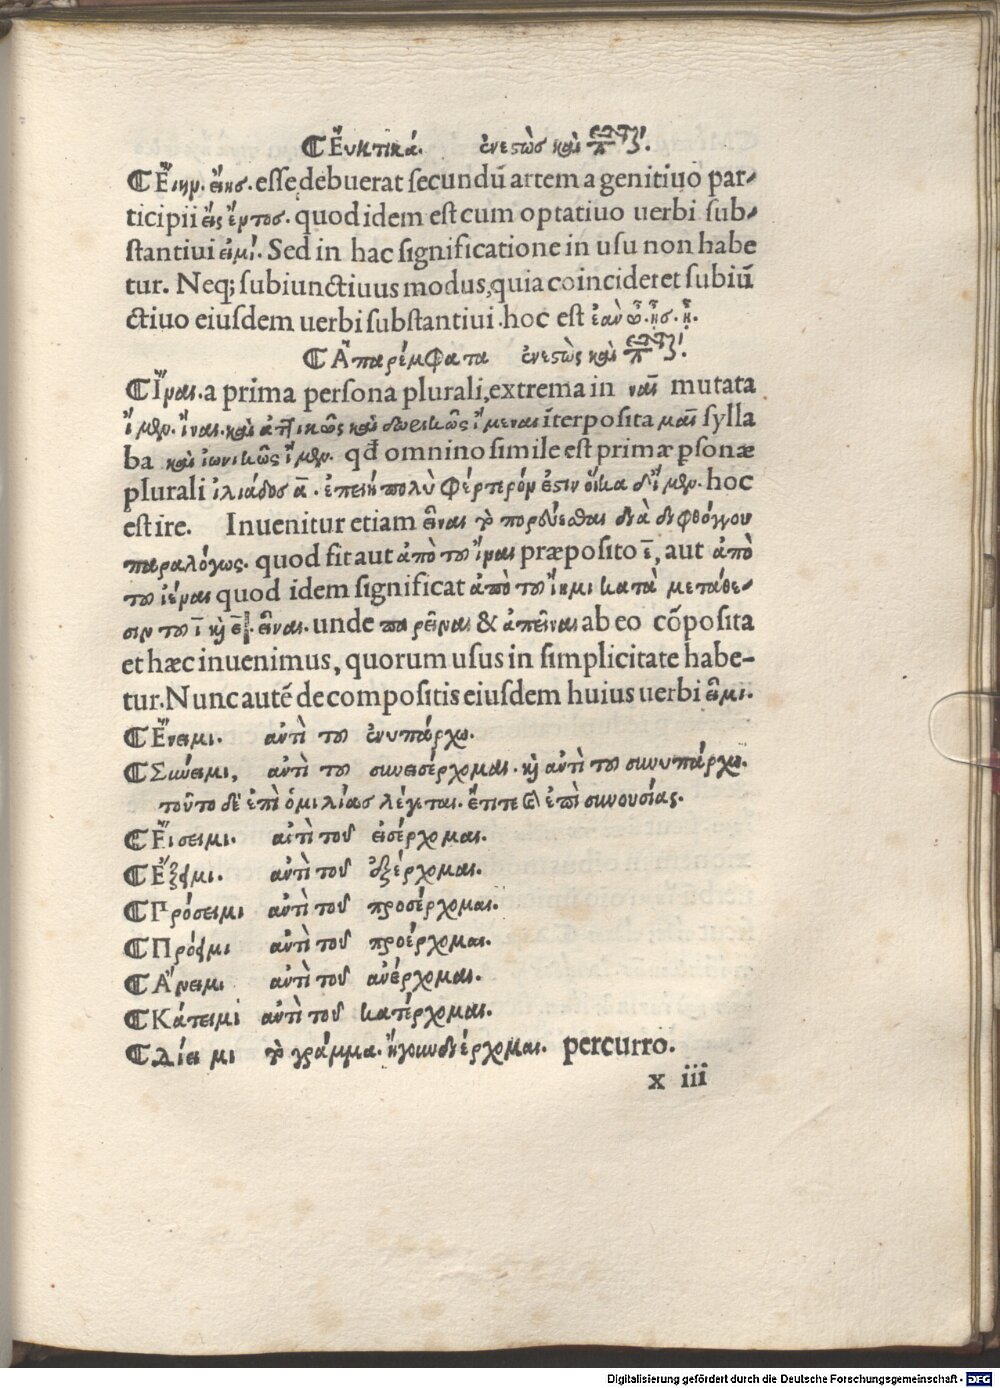 ☾Εὐκτικά. ἐνεστὼσ καὶ
☾Εἴην. εἴησ. esse debuerat secundū artem a genitiuo par-
ticipii εἷς ἕντοσ. quod idem est cum optatiuo uerbi sub-
stantiui εἰμί. Sed in hac significatione in usu non habe
tur. Neq; subiunctiuus modus, quia coincideret subiū
ctiuo eiusdem uerbi substantiui. hoc est ἐὰν ὦ. ᾖσ. ᾖ.
☾Ἀπαρέμφατα ἐνεστὼς καὶ
☾Ἴναι. a prima persona plurali, extrema in ναι mutata
ἴμεν. ἴναι. καὶ ἀττικῶς καὶ δωρικῶς ἴμεναι īterposita μαι sylla
ba καὶ ἰωνικῶς ἴμεν. qđ omnino simile est primæ psonæ
plurali ἰλιάδοσ ᾱ. ἐπειὴ πολὺ φέρτερόν ἐστιν οἴκα δ' ἴμεν. hoc
est ire. Inuenitur etiam εἶναι τὸ πορεύεσθαι διὰ διφθόγγου
παραλόγως. quod fit aut ἀπὸ τοῦ ἴναι præposito ε̄, aut ἀπὸ
τοῦ ἰέναι quod idem significat ἀπὸ τοῦ ἵημι κατὰ μετάθε-
σιν τοῦ ῑ κỳ ε̄. εἶναι. unde παρεῖναι & ἀπεῖναι ab eo cōposita
et hæc inuenimus, quorum usus in simplicitate habe-
tur. Nunc autē de compositis eiusdem huius uerbi εἶμι.
☾Ἔνειμι. ἀντὶ τοῦ ἐνυπάρχω.
☾Σύνειμι, ἀντὶ τοῦ συνεισέρχομαι. κỳ ἀντὶ τοῦ συνυπάρχω.
τοῦτο δὲ ἐπὶ ὁμιλίασ λέγεται. ἔτιτε καὶ ἐπὶ συνουσίας.
☾Εἴσειμι. ἀντὶ τοῦ εἰσέρχομαι.
☾Ἔξειμι. ἀντὶ τοῦ ἐξέρχομαι.
☾Πρόσειμι ἀντὶ τοῦ προσέρχομαι.
☾Πρόειμι ἀντὶ τοῦ προέρχομαι.
☾Ἄνειμι ἀντὶ τοῦ ἀνέρχομαι.
☾Κάτειμι ἀντὶ τοῦ κατέρχομαι.
☾Δίει μι τὸ γράμμα. ἤγουν διέρχομαι. percurro.
x iii
Digitalisierung gefördert durch die Deutsche Forschungsgemeinschaft - DFG